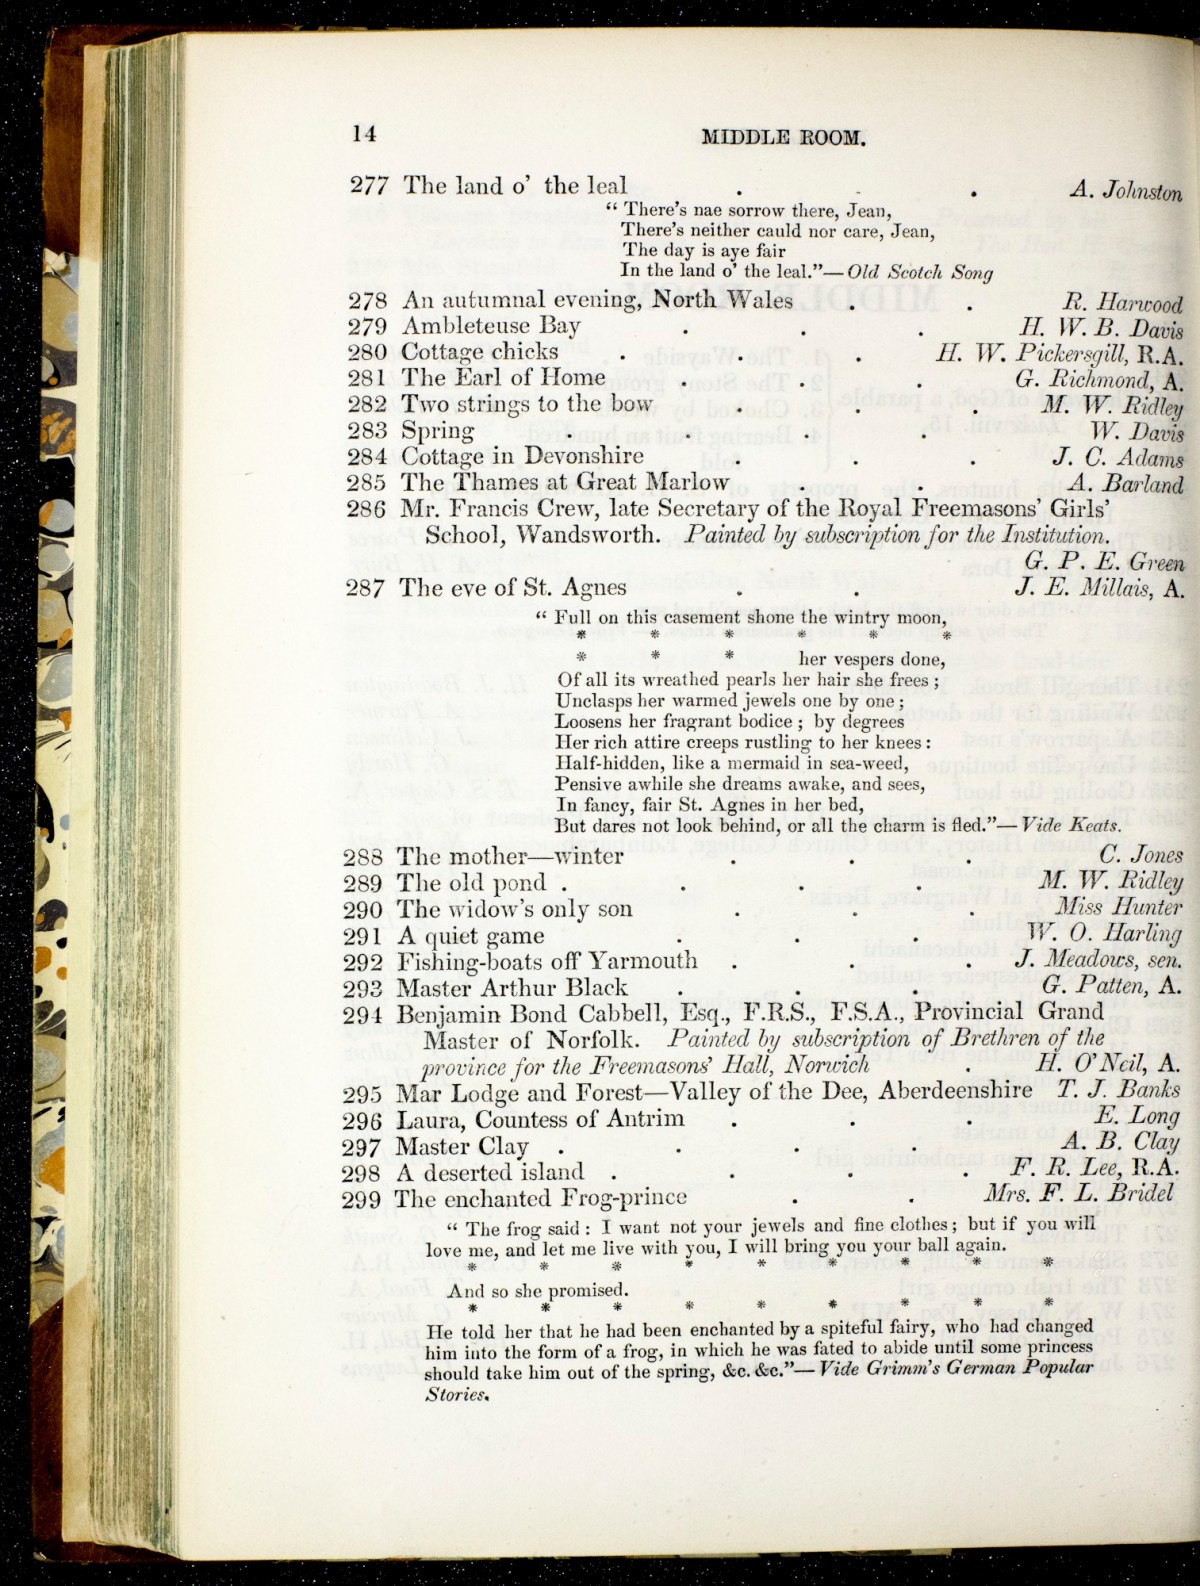 14 MIDDLE ROOM.
277 The land o' the leal . . . A. Johnston
“ There's nae sorrow there, Jean,
There's neither cauld nor care, Jean,
The day is aye fair
In the land o' the leal.”—Old Scotch Song
278 An autumnal evening, North Wales . . R. Harwood
279 Ambleteuse Bay . . . H. W. B. Davis
280 Cottage chicks . . . H. W. Pickersgill, R.A.
281 The Earl of Home . . . G. Richmond, A.
282 Two strings to the bow . . . M. W. Ridley
283 Spring . . . . W. Davis
284 Cottage in Devonshire . . . J. C. Adams
285 The Thames at Great Marlow . . A. Barland
286 Mr. Francis Crew, late Secretary of the Royal Freemasons' Girls'
School, Wandsworth. Painted by subscription for the Institution.
G. P. E. Green
287 The eve of St. Agnes . . J. E. Millais, A.
“ Full on this casement shone the wintry moon,
* * * * * *
* * * her vespers done,
Of all its wreathed pearls her hair she frees ;
Unclasps her warmed jewels one by one ;
Loosens her fragrant bodice ; by degrees
Her rich attire creeps rustling to her knees :
Half-hidden, like a mermaid in sea-weed,
Pensive awhile she dreams awake, and sees,
In fancy, fair St. Agnes in her bed,
But dares not look behind, or all the charm is fled.”—Vide Keats.
288 The mother—winter . . . C. Jones
289 The old pond . . . . M. W. Ridley
290 The widow's only son . . . Miss Hunter
291 A quiet game . . . W. O. Harling
292 Fishing-boats off Yarmouth . . . J. Meadows, sen.
293 Master Arthur Black . . . G. Patten, A.
294 Benjamin Bond Cabbell, Esq., F.R.S., F.S.A., Provincial Grand
Master of Norfolk. Painted by subscription of Brethren of the
province for the Freemasons' Hall, Norwich . H. O'Neil, A.
295 Mar Lodge and Forest—Valley of the Dee, Aberdeenshire T. J. Banks
296 Laura, Countess of Antrim . . . E. Long
297 Master Clay . . . . A. B. Clay
298 A deserted island . . . . F. R. Lee, R.A.
299 The enchanted Frog-prince . . Mrs. F. L. Bridel
“ The frog said : I want not your jewels and fine clothes ; but if you will
love me, and let me live with you, I will bring you your ball again.
* * * * * * * * *
And so she promised.
* * * * * * * * *
He told her that he had been enchanted by a spiteful fairy, who had changed
him into the form of a frog, in which he was fated to abide until some princess
should take him out of the spring, &c. &c.”—Vide Grimm's German Popular
Stories.